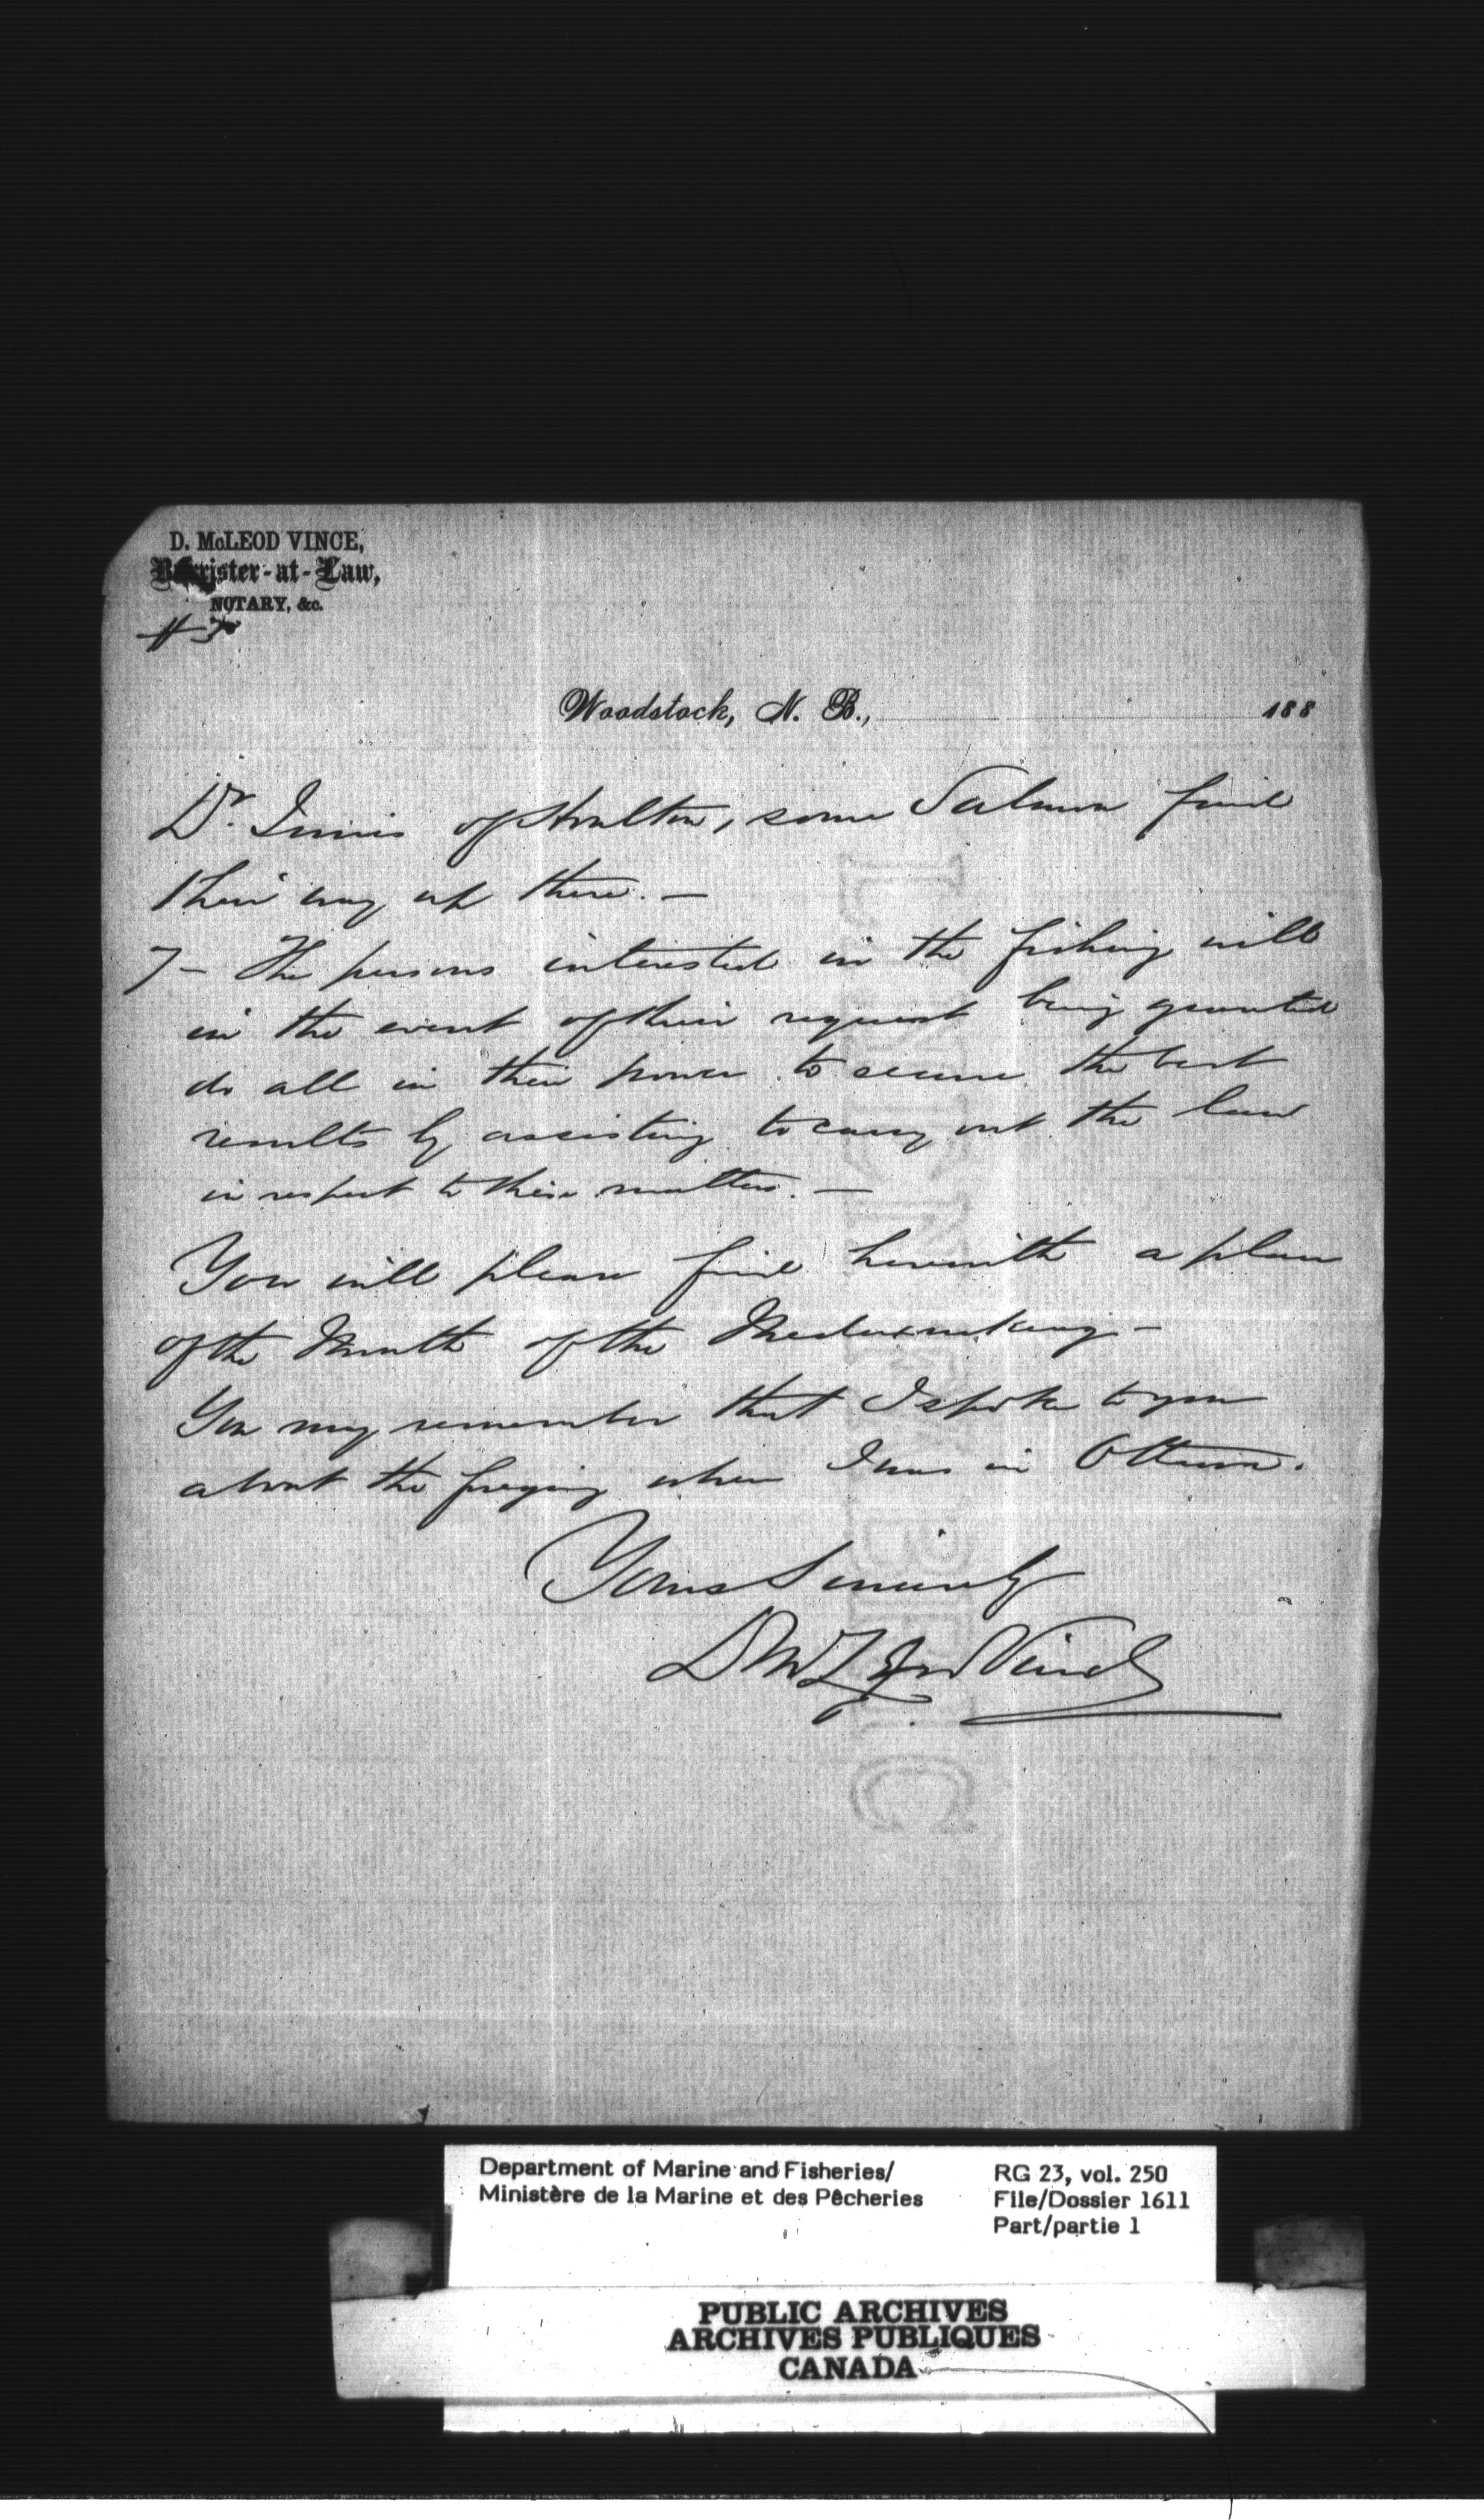 D. McLEOD VINCE,
Barrister-at-Law,
NOTARY, &c.
# 3
Woodstock, N. B., 188
Dr. Innis of Houlton, some Salmon find
their way up there. —
7 – The persons interested in the fishing will
in the event of their request being granted
do all in their power to secure the best
results by assisting to carry out the law
in respect to these matters. —
You will please find herewith a plan
of the Mouth of the Meduxnakeag –
You may remember that I spoke to you
about the foregoing when I was in Ottawa.
Yours Sincerely
D McLeod Vince
LINEN FABRIC
Department of Marine and Fisheries/
Ministère de la Marine et des Pêcheries
RG 23, vol. 250
File/Dossier 1611
Part/partie 1
PUBLIC ARCHIVES
ARCHIVES PUBLIQUES
CANADA